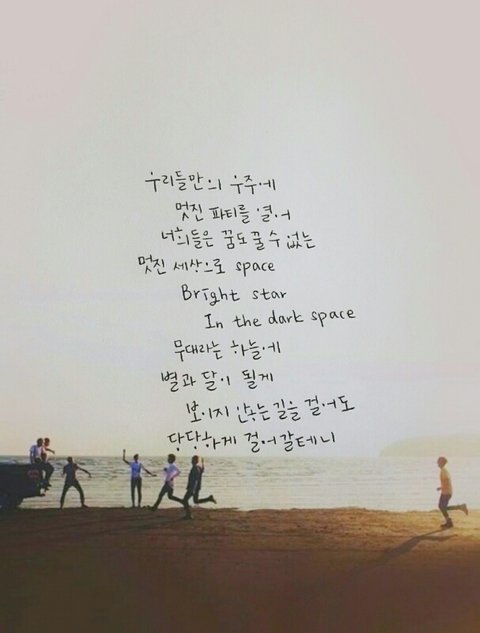 우리들만의 우주에
멋진 파티를 열어
너희들은 꿈도 꿀 수 없는
멋진 세상으로 space
Bright star
In the dark space
무대라는 하늘에
별과 달이 될게
보이지 않는 길을 걸어도
당당하게 걸어갈테니